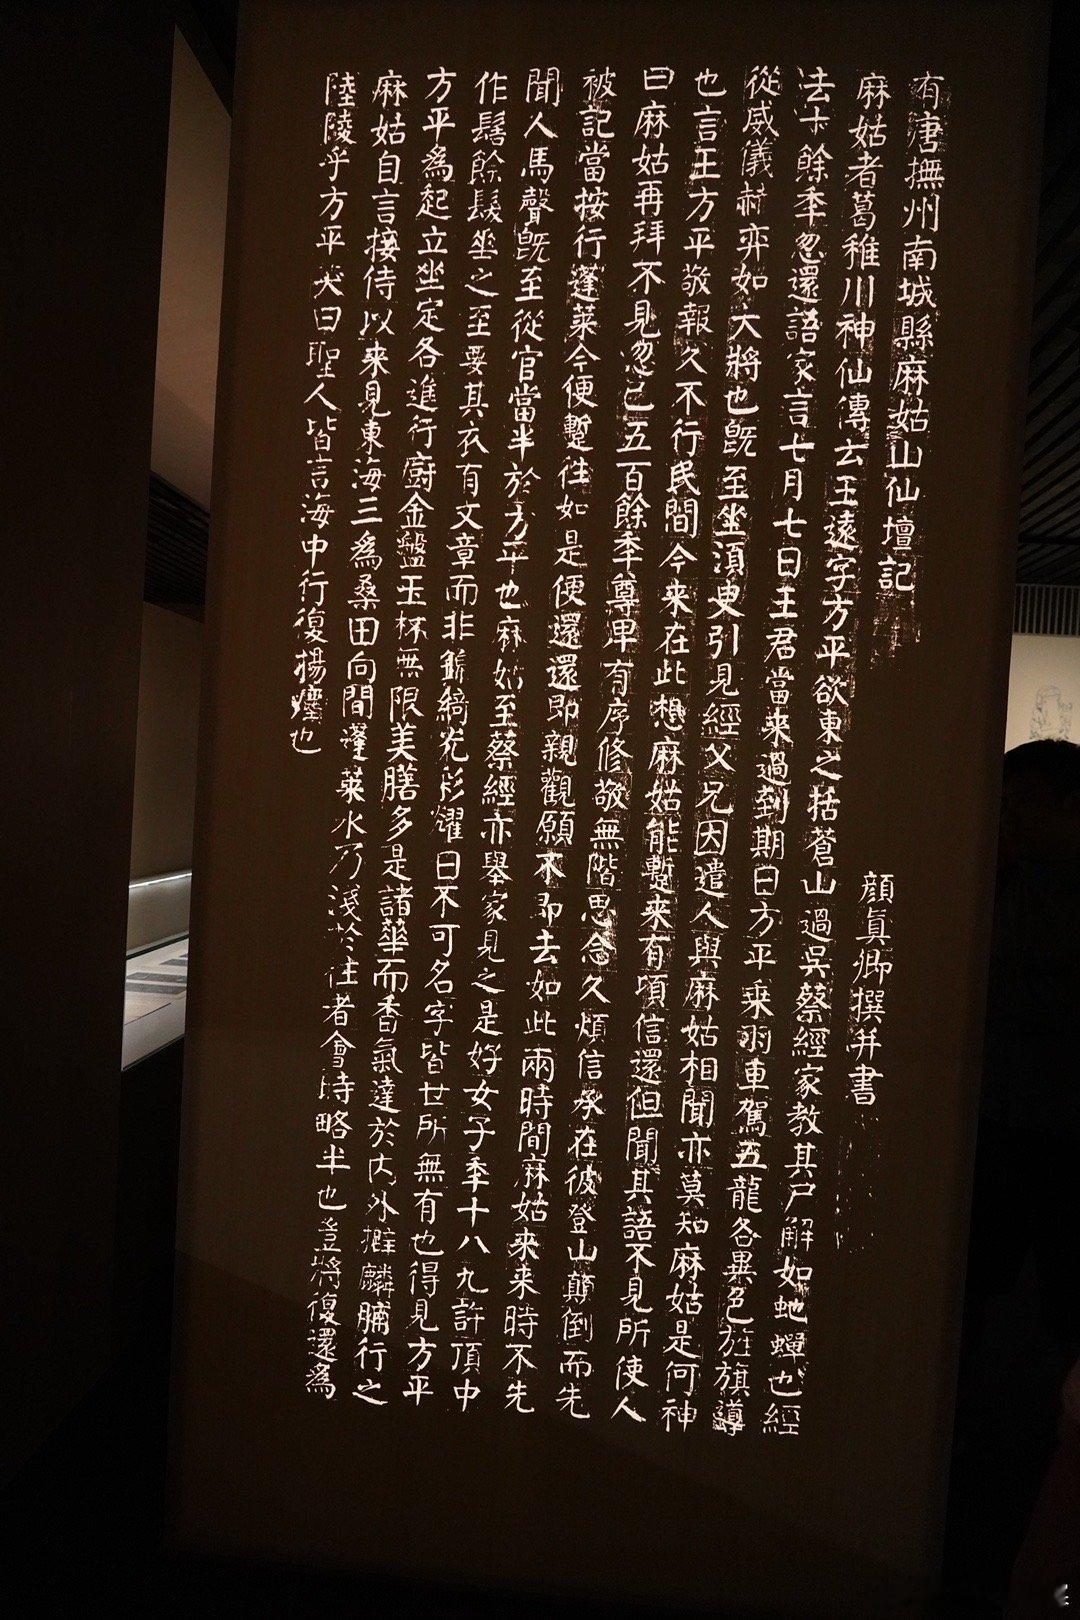 有唐撫州南城縣麻姑山仙壇記
顏真卿撰并書
麻姑者葛稚川神仙傳云王遠字方平欲東之括蒼山過吳蔡經家教其尸解如虵蟬也經
去十餘年忽還語家言七月七日王君當來過到期日方平乘羽車駕五龍各異色旌旗導
從威儀赫弈如大將也旣至坐湏臾引見經父兄因遣人與麻姑相聞亦莫知麻姑是何神
也言王方平敬報久不行民間今來在此想麻姑能蹔來有頃信還但聞其語不見所使人
曰麻姑再拜不見忽已五百餘年尊卑有序修敬無階思念久煩信承在彼登山顛倒而先
被記當按行蓬萊今便蹔往如是便還還即親觀願不即去如此兩時間麻姑來來時不先
聞人馬聲旣至從官當半於方平也麻姑至蔡經亦舉家見之是好女子年十八九許頂中
作髻餘髮垂之至要其衣有文章而非錦綺光彩耀日不可名字皆世所無有也得見方平
方平為起立坐定各進行廚金盤玉杯無限美膳多是諸華而香氣達於內外擗麟脯行之
麻姑自言接侍以來見東海三為桑田向間蓬萊水乃淺於往者會時略半也豈將復還為
陸陵乎方平笑曰聖人皆言海中行復揚塵也